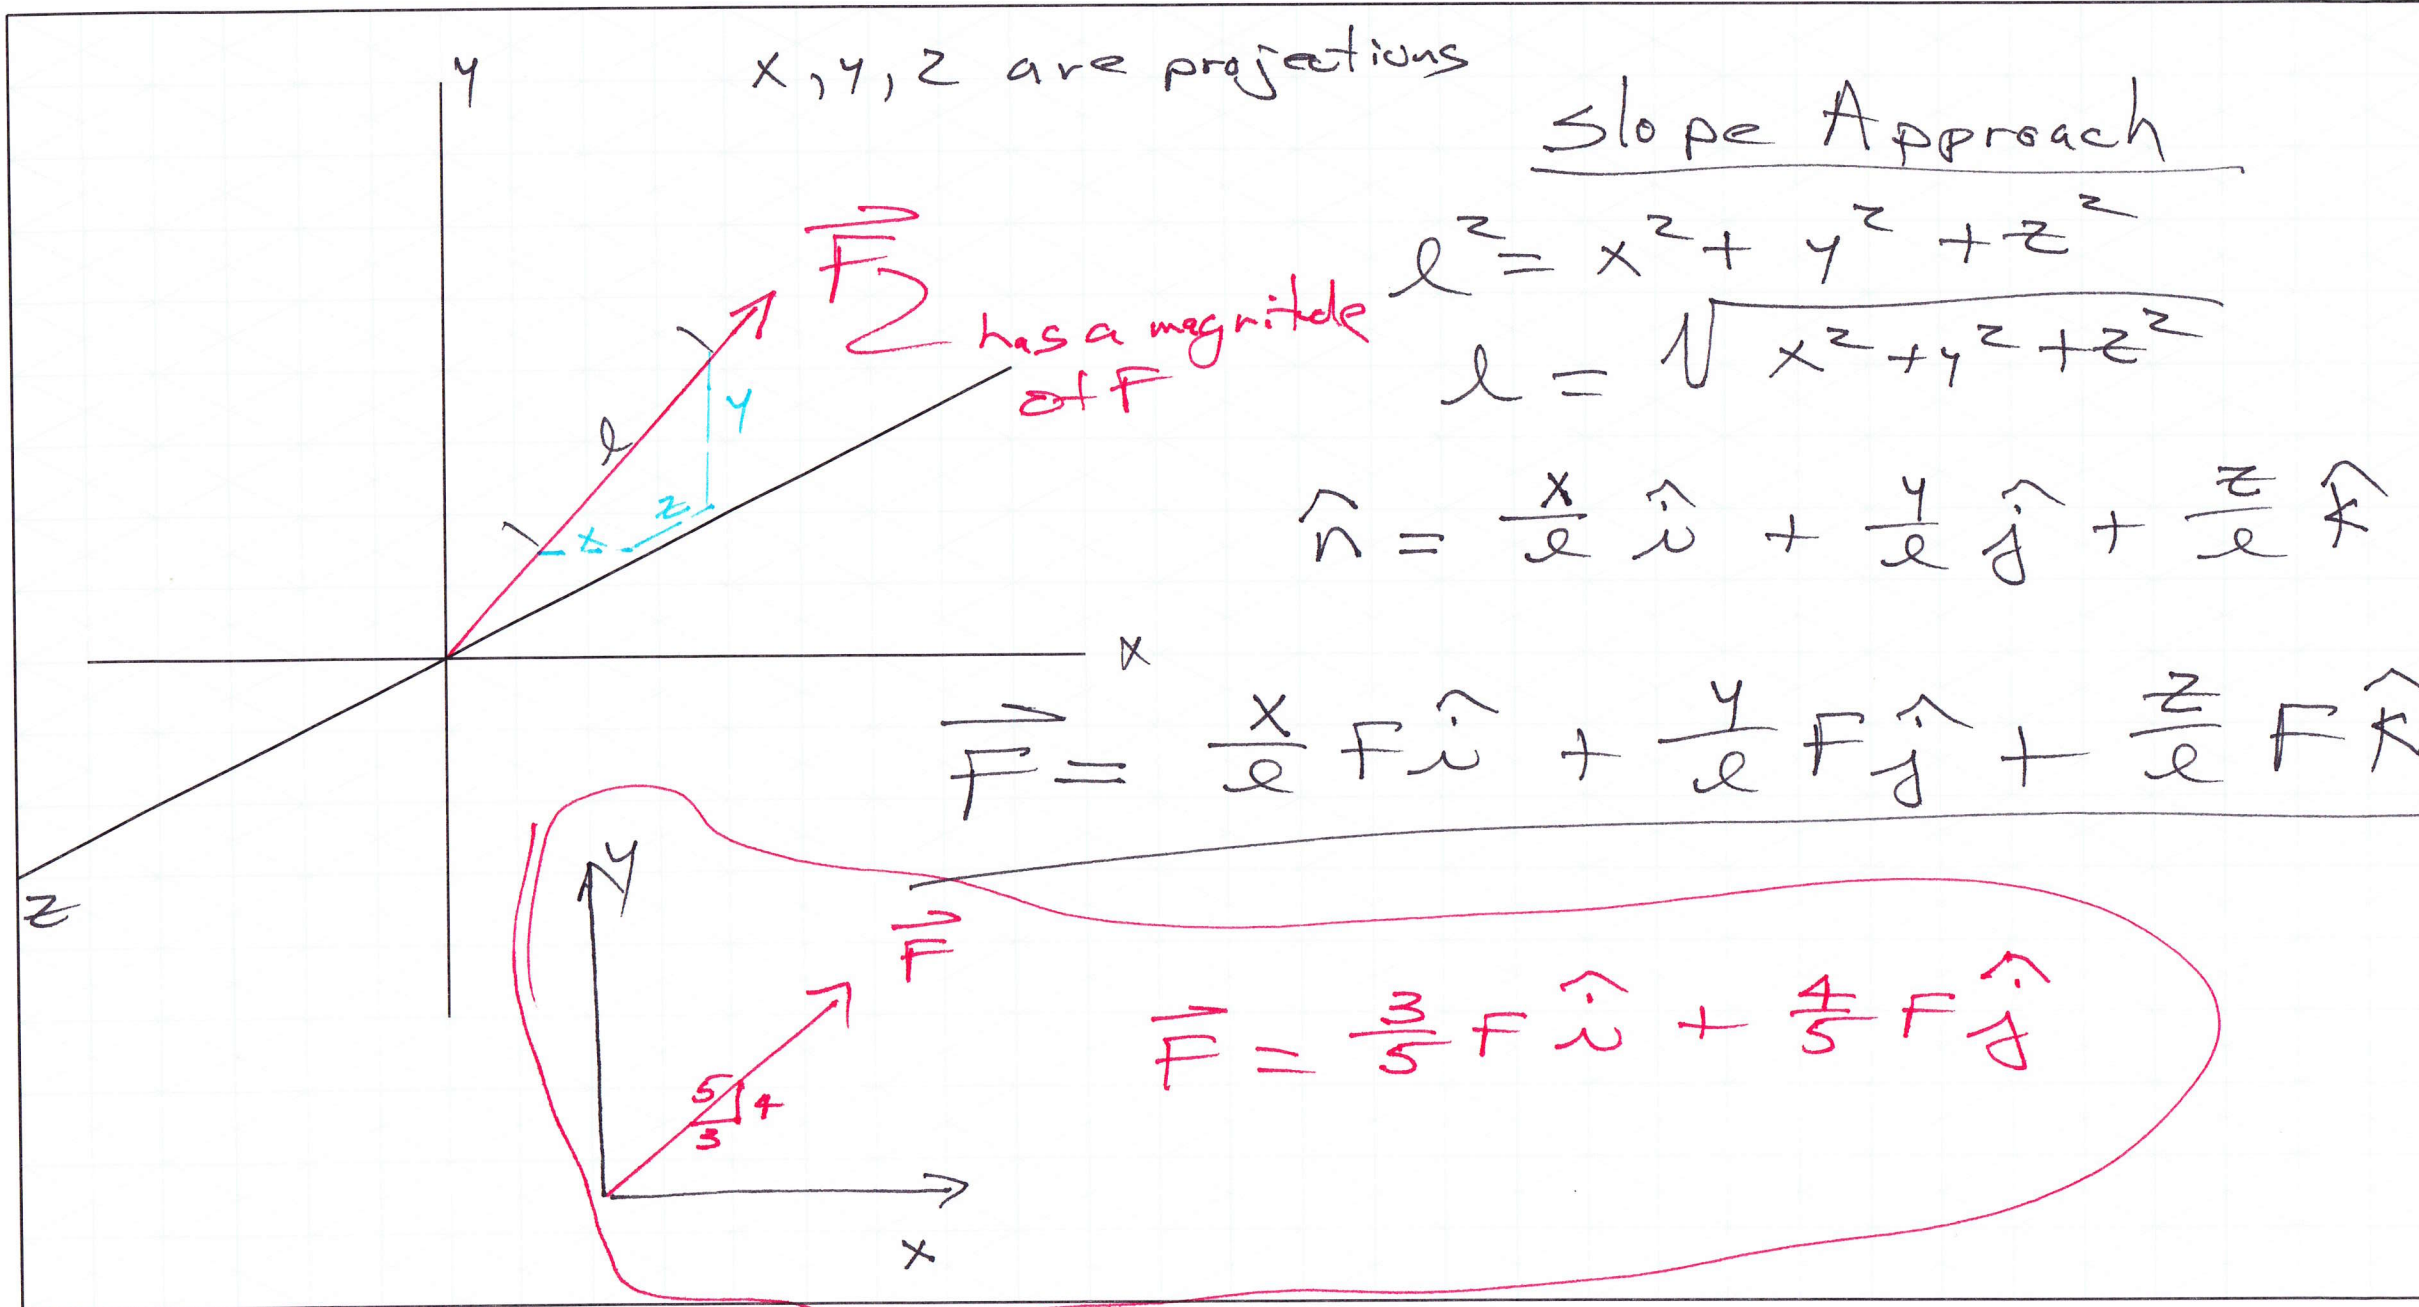 x, y, z are projections
Slope Approach
y
F⃗
has a magnitude
of F
l² = x² + y² + z²
l = √(x² + y² + z²)
l
y
x
z
n̂ = x/l î + y/l ĵ + z/l k̂
x
F⃗ = x/l F î + y/l F ĵ + z/l F k̂
z
y
F⃗
F⃗ = 3/5 F î + 4/5 F ĵ
5
4
3
x